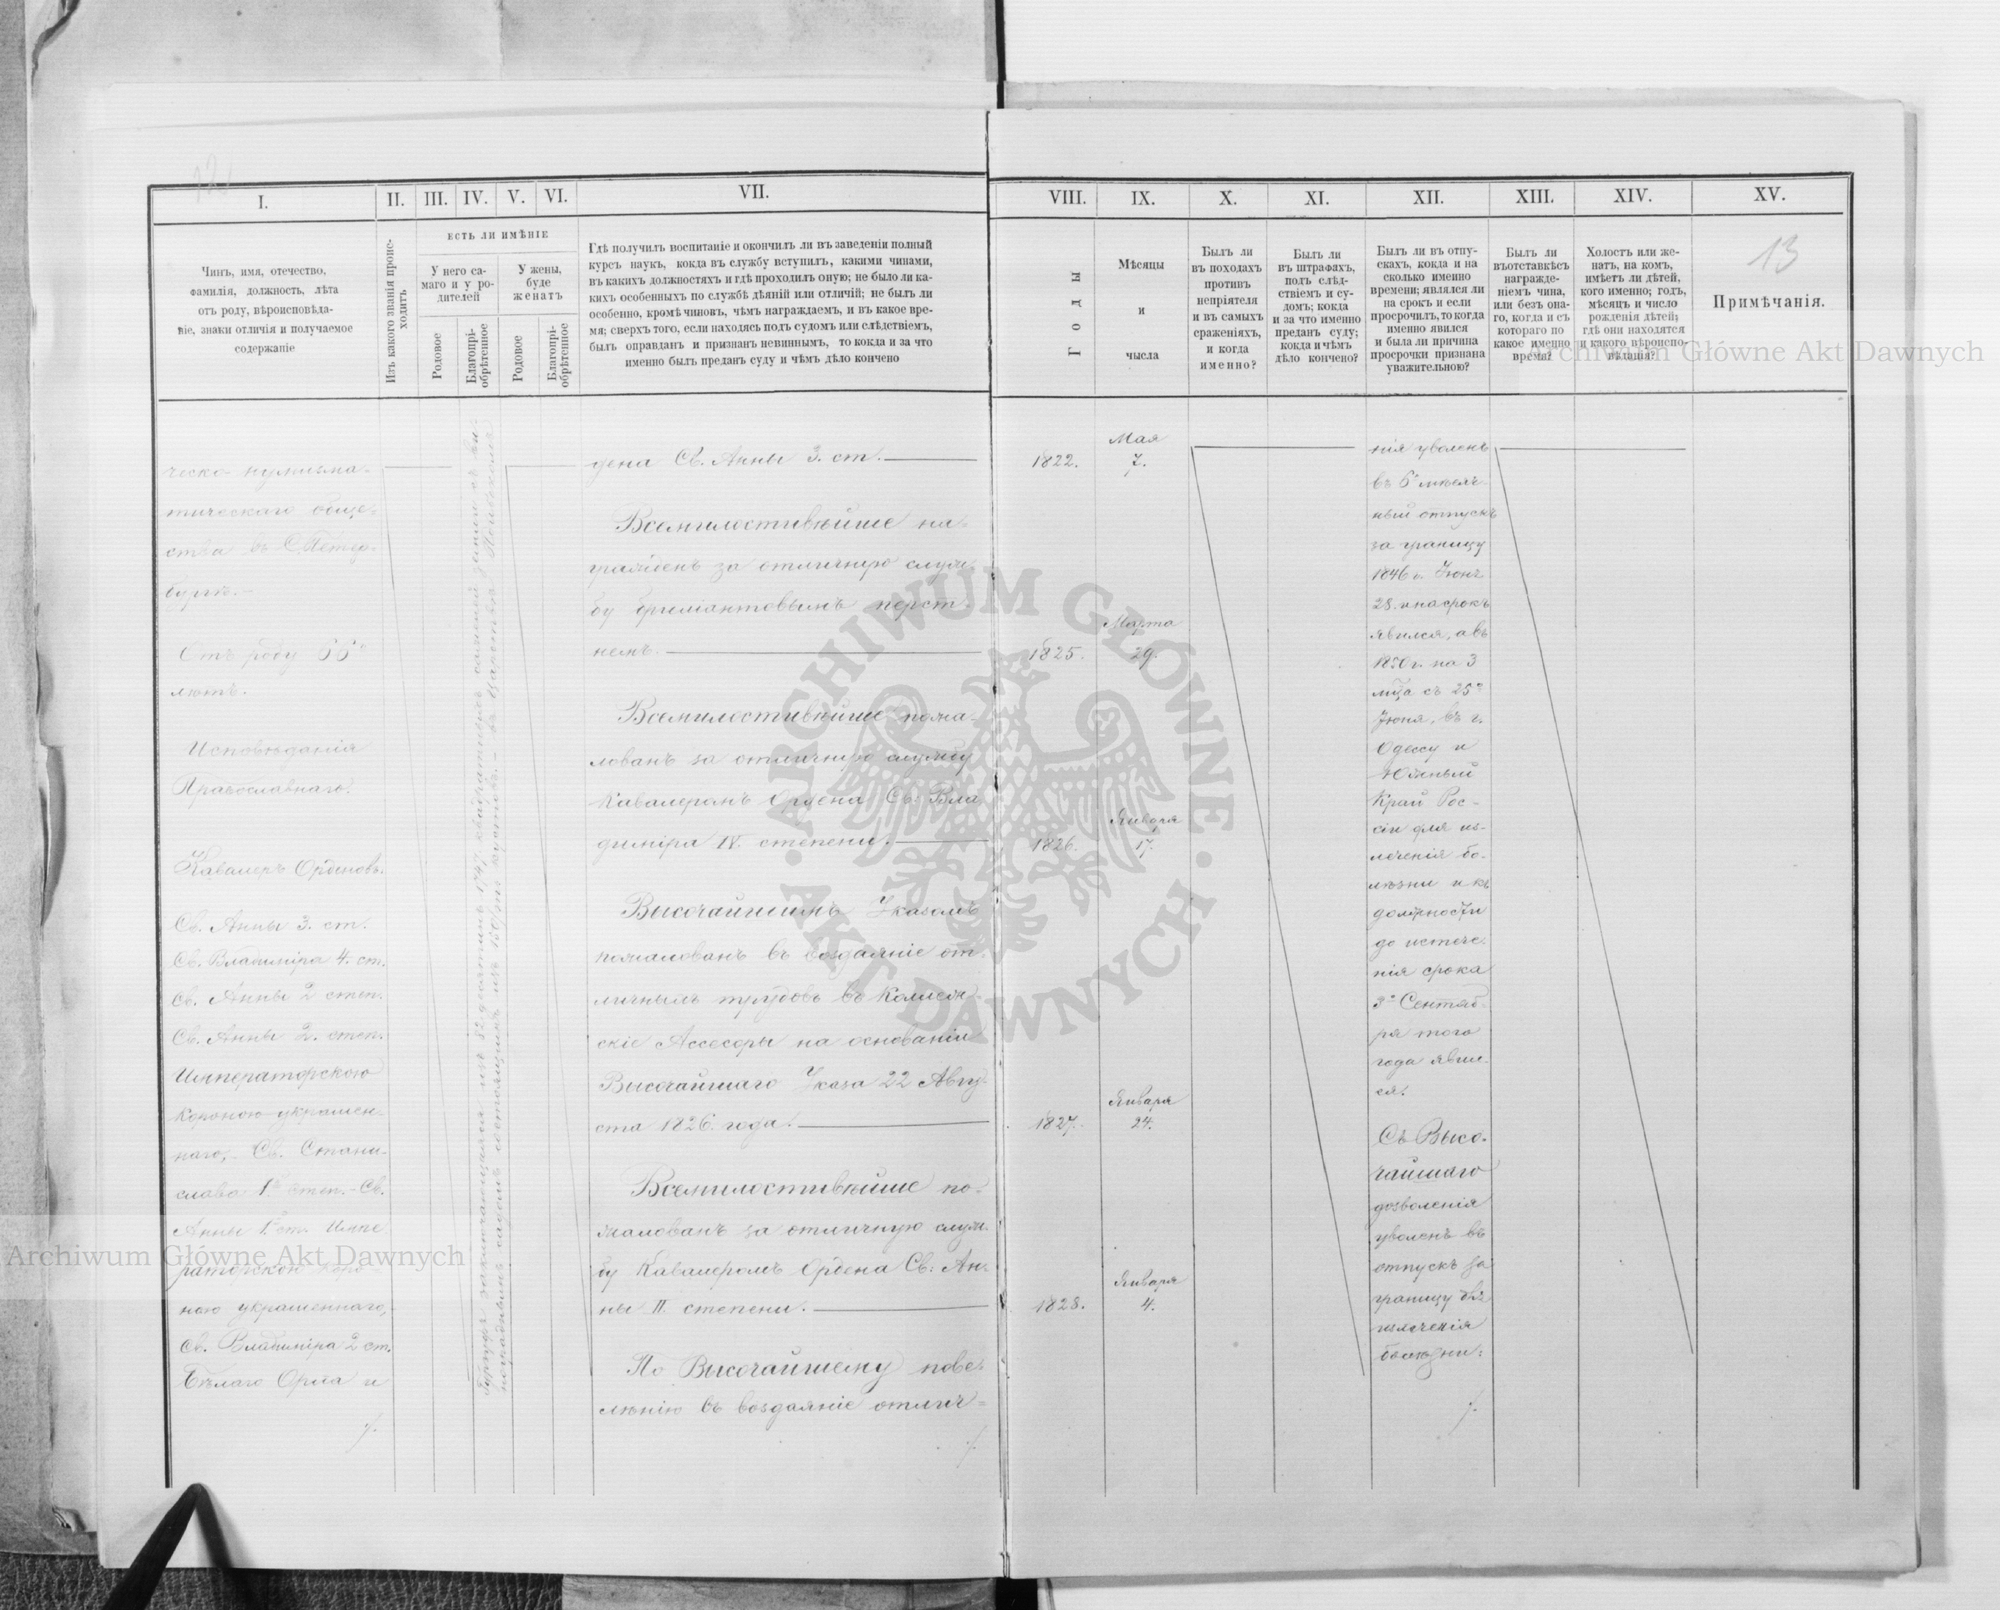 12
I.
II.
III.
IV.
V.
VI.
VII.
VIII.
IX.
X.
XI.
XII.
XIII.
XIV.
XV.
Чинъ, имя, отечество,
фамилія, должность, лѣта
отъ роду, вѣроисповѣда-
ніе, знаки отличія и получаемое
содержаніе
Изъ какого званія проис-
ходитъ
ЕСТЬ ЛИ ИМѢНІЕ
У него са-
маго и у ро-
дителей
У жены,
буде
женатъ
Родовое
Благопрі-
обрѣтенное
Родовое
Благопрі-
обрѣтенное
Гдѣ получилъ воспитаніе и окончилъ ли въ заведеніи полный
курсъ наукъ, кокда въ службу вступилъ, какими чинами,
въ какихъ должностяхъ и гдѣ проходилъ оную; не было ли ка-
кихъ особенныхъ по службѣ дѣяній или отличій; не былъ ли
особенно, кромѣ чиновъ, чѣмъ награждаемъ, и въ какое вре-
мя; сверхъ того, если находясь подъ судомъ или слѣдствіемъ,
былъ оправданъ и признанъ невиннымъ, то кокда и за что
именно былъ преданъ суду и чѣмъ дѣло кончено
Годы
Мѣсяцы
и
числа
Былъ ли
въ походахъ
противъ
непріятеля
и въ самыхъ
сраженіяхъ,
и когда
именно?
Былъ ли
въ штрафахъ,
подъ слѣд-
ствіемъ и су-
домъ; кокда
и за что именно
преданъ суду;
кокда и чѣмъ
дѣло кончено?
Былъ ли въ отпу-
скахъ, кокда и на
сколько именно
времени; являлся ли
на срокъ и если
просрочилъ, то когда
именно явился
и была ли причина
просрочки признана
уважительною?
Былъ ли
въотставкѣсъ
награжде-
ніемъ чина,
или безъ она-
го, когда и съ
котораго по
какое именно
время?
Холостъ или же-
натъ, на комъ,
имѣетъ ли дѣтей,
кого именно; годъ,
мѣсяцъ и число
рожденія дѣтей;
гдѣ они находятся
и какого вѣроиспо-
вѣданія?
13
Примѣчанія.
ческо-нумизма-
тическаго обще-
ства въ СПетер-
бургѣ.-
Отъ роду 66
лѣтъ.
Исповѣданія
Православнаго.
Кавалеръ Орденовъ
Св. Анны 3. ст.
Св. Владиміра 4. ст.
Св. Анны 2 степ.
Св. Анны 2. степ.
Императорскою
Короною украшен-
наго, Св. Стани-
слава 1й степ.-Св.
Анны 1 ст. Импе-
раторскою коро-
ною украшеннаго,
Св. Владиміра 2 ст.
Бѣлаго Орла и
./.
дена Св. Анны 3. ст.
Всемилостивѣйше на-
гражденъ за отличную служ-
бу бриліантовымъ перст-
немъ.
Всемилостивѣйше пожа-
лованъ за отличную службу
Кавалеромъ Ордена Св: Вла-
диміра IV. степени.
Высочайшимъ Указомъ
пожалованъ въ воздаяніе от-
личныхъ трудовъ въ Коллеж-
скіе Ассесоры на основаніи
Высочайшаго Указа 22 Авгу-
ста 1826. года.
Всемилостивѣйше по-
жалованъ за отличную служ-
бу Кавалеромъ Ордена Св: Ан-
ны II. степени.
По Высочайшему пове-
лѣнію въ воздаяніе отлич-
./.
1822.
Мая
7.
1825.
Марта
29.
1826.
Января
17.
1827.
Января
24.
1828.
Января
4.
нія уволенъ
въ 6и мѣсяч-
ный отпускъ
за границу
1846 г. Іюня
28. и на срокъ
явился, а въ
1850 г. на 3
мѣсяца съ 25го
Іюня, въ г.
Одессу и
Южный
Край Рос-
сіи для из-
леченія бо-
лѣзни и къ
должности
до истече-
нія срока
3го Сентяб-
ря того
года явил-
ся.
Съ Высо-
чайшаго
дозволенія
уволенъ въ
отпускъ за
границу для
излеченія
болѣзни.
./.
ARCHIWUM GŁÓWNE · AKT DAWNYCH ·
Archiwum Główne Akt Dawnych
Archiwum Główne Akt Dawnych